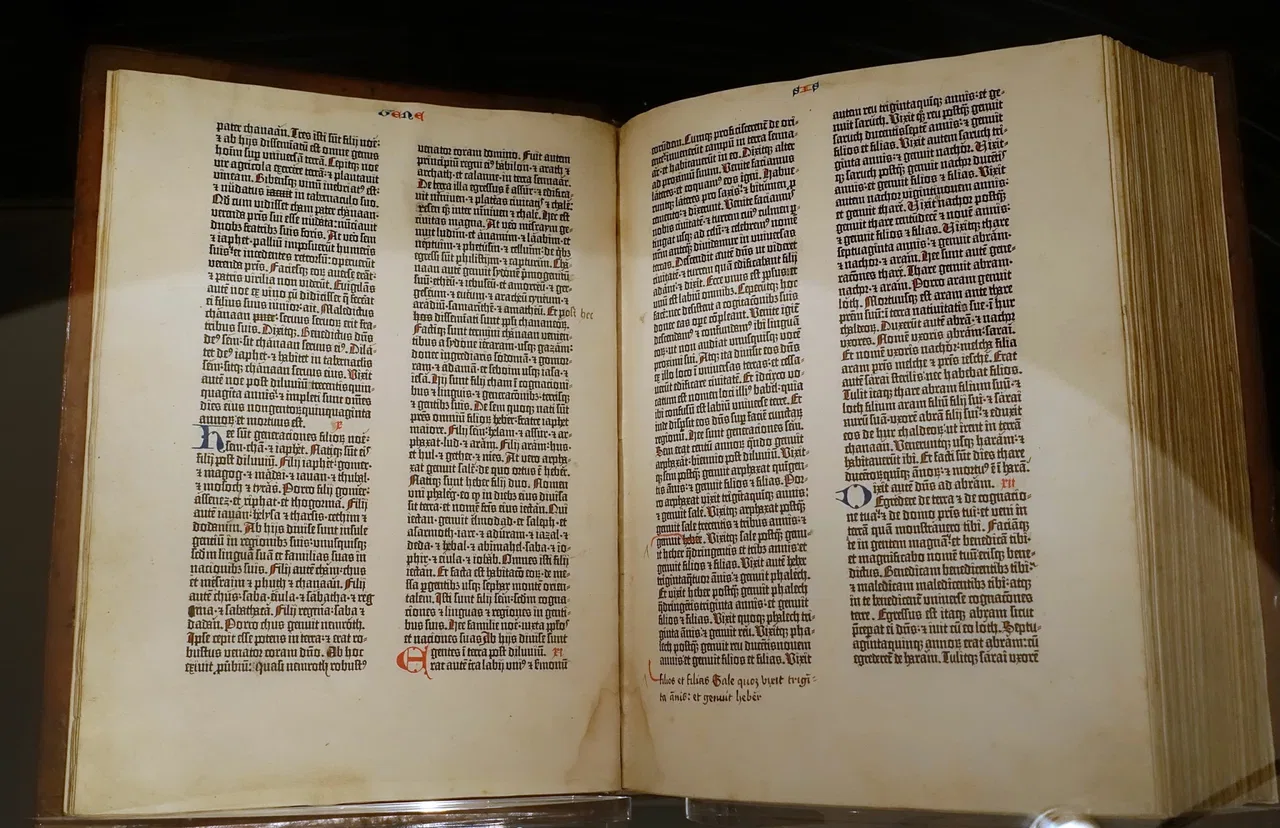 Gene
pater chanaan. Tres isti sūt filij noe:
⁊ ab hijs disseminatū est omne genus
hoīm sup universam terrā. Cepitqꝫ noe
vir agricola exercere terrā: ⁊ plantavit
vineam. Bibensqꝫ vinū inebriatꝰ est:
⁊ nudatus in tabernaculo suo.
Qd cum vidisset cham pater chanaan:
verenda pr̄is sui esse nudata: nūciavit
duobꝫ fratribꝫ suis foris. At vero sem
⁊ iaphet palliū imposuerūt humeris
suis: ⁊ incedentes retrorsū: operuerūt
verenda pr̄is. Faciesqꝫ eoꝝ averse erāt:
⁊ patris virilia non viderūt. Evigilās
autē noe ex vino cū didicisset q̄ fecerat
ei filius suus minor: ait. Maledictus
chanaan: servus servoꝝ erit fra-
tribus suis. Dixitqꝫ. Benedictus dn̄s
deꝰ sem: sit chanaan servus eiꝰ. Dila-
tet deꝰ iaphet: ⁊ habitet in tabernaclis
sem: sitqꝫ chanaan servus eius. Vixit
autē noe post diluviū trecentisquin-
quagita annis: ⁊ impleti sunt om̄es
dies eius nongentoꝝquinquaginta
annoꝝ: et mortuus est. x
Hee sūt generaciones filioꝝ noe:
sem cham ⁊ iaphet. Natiqꝫ sūt eiˢ
filij post diluviū. Filij iaphet: gomer
⁊ magog ⁊ madai ⁊ iavan ⁊ thubal
⁊ mosoch ⁊ tyras. Porro filij gomer:
assenez et riphat et thogorma. Filij
autē iavan: helysa ⁊ tharsis cethim ⁊
dodanim. Ab hijs divise sunt insule
genciū in regionibꝫ suis: unusquisqꝫ
scdm linguā suā et familias suas in
nacionibꝫ suis. Filij autē cham: chus
et mesraim ⁊ phuth ⁊ chanaan. Filij
autē chus: saba ⁊ evila ⁊ sabatha ⁊ reg
ma ⁊ sabathaca. Filij regma: saba ⁊
dadan. Porro chus genuit nemroth.
Ipse cepit esse potens in terra: ⁊ erat ro-
bustus venator coram dn̄o. Ob hoc
exivit ꝓverbiū: quasi nemroth robustꝰ
venator coram domino. Fuit autem
principiū regni eiꝰ babilon ⁊ arach ⁊
archad: et calanne in terra sennaar.
De terra illa egressus ē assur: ⁊ edifica-
vit niniven ⁊ plateas civitatꝭ ⁊ chale:
resen qꝫ inter niniven ⁊ chale. Hec est
civitas magna. At vero mesraym ge-
nuit ludim: et anamim ⁊ laabim et
neptuim ⁊ phetrusim ⁊ cesluim: de q̄bꝫ
egressi sūt philistijm ⁊ capturim. Cha-
naan autē genuit sydonē pmogenitū
suū: ethēū ⁊ iebuseū et amorreū ⁊ ger-
geseum: ⁊ eveum ⁊ araceū syneum ⁊
aradiū: samaritē ⁊ amatheū. Et post hec
hijs disseminati sunt ppli chananeoꝝ.
Factiqꝫ sunt termini chanaan venien-
tibus a sydone ieraram usqꝫ gazam:
donec ingrediaris sodomā ⁊ gomor-
ram ⁊ adamam et seboim usqꝫ ad le-
sa. Hij sunt filij cham ī cognacioni-
bus et linguis ⁊ generacionibꝫ: terrisqꝫ
⁊ gentibꝫ suis. De sem quoqꝫ nati sūt
patre omniū filioꝝ heber: fratre iaphet
maiore. Filij sem: helam ⁊ assur ⁊ ar-
phaxat ⁊ lud ⁊ aram. Filij aram: hus
et hul ⁊ gether ⁊ mes. At vero arpha-
xat genuit sale: de quo ortus ē heber.
Natiqꝫ sunt heber filij duo. Nomen
uni phaleg: eo qꝫ in diebꝫ eius divisa
sit terra: et nomē fr̄is eius iectan. Qui
iectan genuit elmodad ⁊ saleph et
asarmoth iare ⁊ adiuram ⁊ iazal ⁊
decla ⁊ hebal ⁊ abimahel: saba ⁊ o-
phir ⁊ evila ⁊ iobab. Omnes isti filij
iectan. Et facta est habitacio eoꝝ de me-
ssa pgentibꝫ usqꝫ sephar montē orien-
talem. Isti sunt filij sem: scdm cogna-
ciones ⁊ linguas ⁊ regiones in genti-
bus suis. Hee familie noe: iuxta pplos
et naciones suas. Ab hijs divise sunt
gentes ī terra post diluviū. xi
Erat autē terra labij uniꝰ ⁊ sermonū
sis
eorūdem. Cumqꝫ proficiscerent̄ de ori-
ente: invenerūt campū in terra senna-
ar: et habitaverūt in eo. Dixitqꝫ alter
ad proximum suum. Venite faciamus
lateres: et coquam̄ eos igni. Habue-
rūtqꝫ lateres pro saxis: ⁊ bitumen p
cemento: ⁊ dixerūt. Venite faciam̄ nobis
civitatē ⁊ turrem cuiꝰ culmen p-
tingat usqꝫ ad celū: ⁊ celebrem̄ nomē
nrm̄ anteqꝫ dividamur in universas
terras. Descendit autē dn̄s ut videret
civitatē ⁊ turrem quā edificabant filij
adam: ⁊ dixit. Ecce unus est ppl̄us: et
unū est labiū omnibꝫ. Ceperūtqꝫ hoc
facere: nec desistent a cogitacionibꝫ suis
donec eas ope cōpleant. Venite igit̄
descendam̄ ⁊ confundam̄ ibi linguā
eoꝝ: ut non audiat unusquisqꝫ vocē
proximi sui. Atqꝫ ita divisit eos dn̄s
ex illo loco ī universas terras: et cessa-
verunt edificare civitatē. Et idcirco vo-
catum est nomen loci illiꝰ babel: quia
ibi confusū est labiū universe terre. Et
inde dispsit eos dn̄s sup faciē cunctaꝝ
regionū. Hee sunt generaciones sem.
Sem erat centū annoꝝ qn̄do genuit
arphaxat: biennio post diluviū. Vixit-
qꝫ sem postqꝫ genuit arphaxat quigen-
tis annis: ⁊ genuit filios ⁊ filias. Por-
ro arphaxat vixit trigitaquiqꝫ annis:
⁊ genuit sale. Vixitqꝫ arphaxat postqꝫ
genuit sale trecentis ⁊ tribus annis: ⁊
genuit heber. Vixitqꝫ sale postqꝫ genu-
it heber qdringentis et tribꝫ annis: et
genuit filios ⁊ filias. Vixit autē heber
trigintaqtuor annis: ⁊ genuit phalech.
Et vixit heber postqꝫ genuit phalech
qdringētistriginta annis: et genuit
filios ⁊ filias. Vixit quoqꝫ phalech tri-
ginta annis: ⁊ genuit reu. Vixitqꝫ pha-
lech postqꝫ genuit reu ducētisnovem
annis: et genuit filios et filias. Vixit
filios et filias Sale quoqꝫ vixit trigi-
ta annis: et genuit heber
autem reu trigintaquiqꝫ annis: et ge-
nuit saruch. Vixit qꝫ reu postqꝫ genuit
saruch ducentisseptē annis: ⁊ genuit
filios et filias. Vixit autem saruch tri-
ginta annis: ⁊ genuit nachor. Vixit-
qꝫ saruch postqꝫ genuit nachor ducētis
annis: et genuit filios et filias. Vixit
autem nachor vigintinovem annis:
et genuit thare. Vixitqꝫ nachor postqꝫ
genuit thare centūdecē ⁊ novē annis:
⁊ genuit filios ⁊ filias. Vixitqꝫ thare
septuaginta annis: ⁊ genuit abram
⁊ nachor ⁊ aram. Hee sunt autē gene-
raciones thare. Thare genuit abram
nachor ⁊ aram. Porro aram genuit
loth. Mortuusqꝫ est aram ante thare
prem̄ suū: ī terra nativitatis sue ī hur
chaldeoꝝ. Duxerūt autē abrā ⁊ nachor
uxores. Nomē uxoris abrā: sarai:
Et nomē uxoris nachor: melcha filia
aram pr̄is melche ⁊ pr̄is iesche. Erat
autē sarai sterilis: nec habebat filios.
Tulit itaqꝫ thare abram filium suū: ⁊
loth filium aram filiū filij sui: ⁊ sarai
nurū suā uxorē abrā filij sui: ⁊ eduxit
eos de hur chaldeoꝝ: ut irent in terrā
chanaan. Veneruntqꝫ usqꝫ haram: ⁊
habitaverūt ibi. Et facti sūt dies thare
ducentoꝝquiqꝫ ānoꝝ: ⁊ mortuꝰ ē ī harā.
Dixit autē dn̄s ad abram. xii
Egredere de terra ⁊ de cognacio-
ne tua ⁊ de domo pr̄is tui: et veni in
terrā quā monstravero tibi. Faciāqꝫ
te in gentem magnā: et benedicā tibi:
et magnificabo nomē tuū: erisqꝫ bene-
dictus. Benedicam benedicentibꝫ tibi:
⁊ maledicam maledicentibꝫ tibi: atqꝫ
in te benedicent̄ universe cognaciones
terre. Egressus est itaqꝫ abram sicut
p̄cepat ei dn̄s: ⁊ ivit cū eo loth. Septu-
agintaquiqꝫ annoꝝ erat abram: cū
egrederet̄ de haram. Tulitqꝫ sarai uxorē